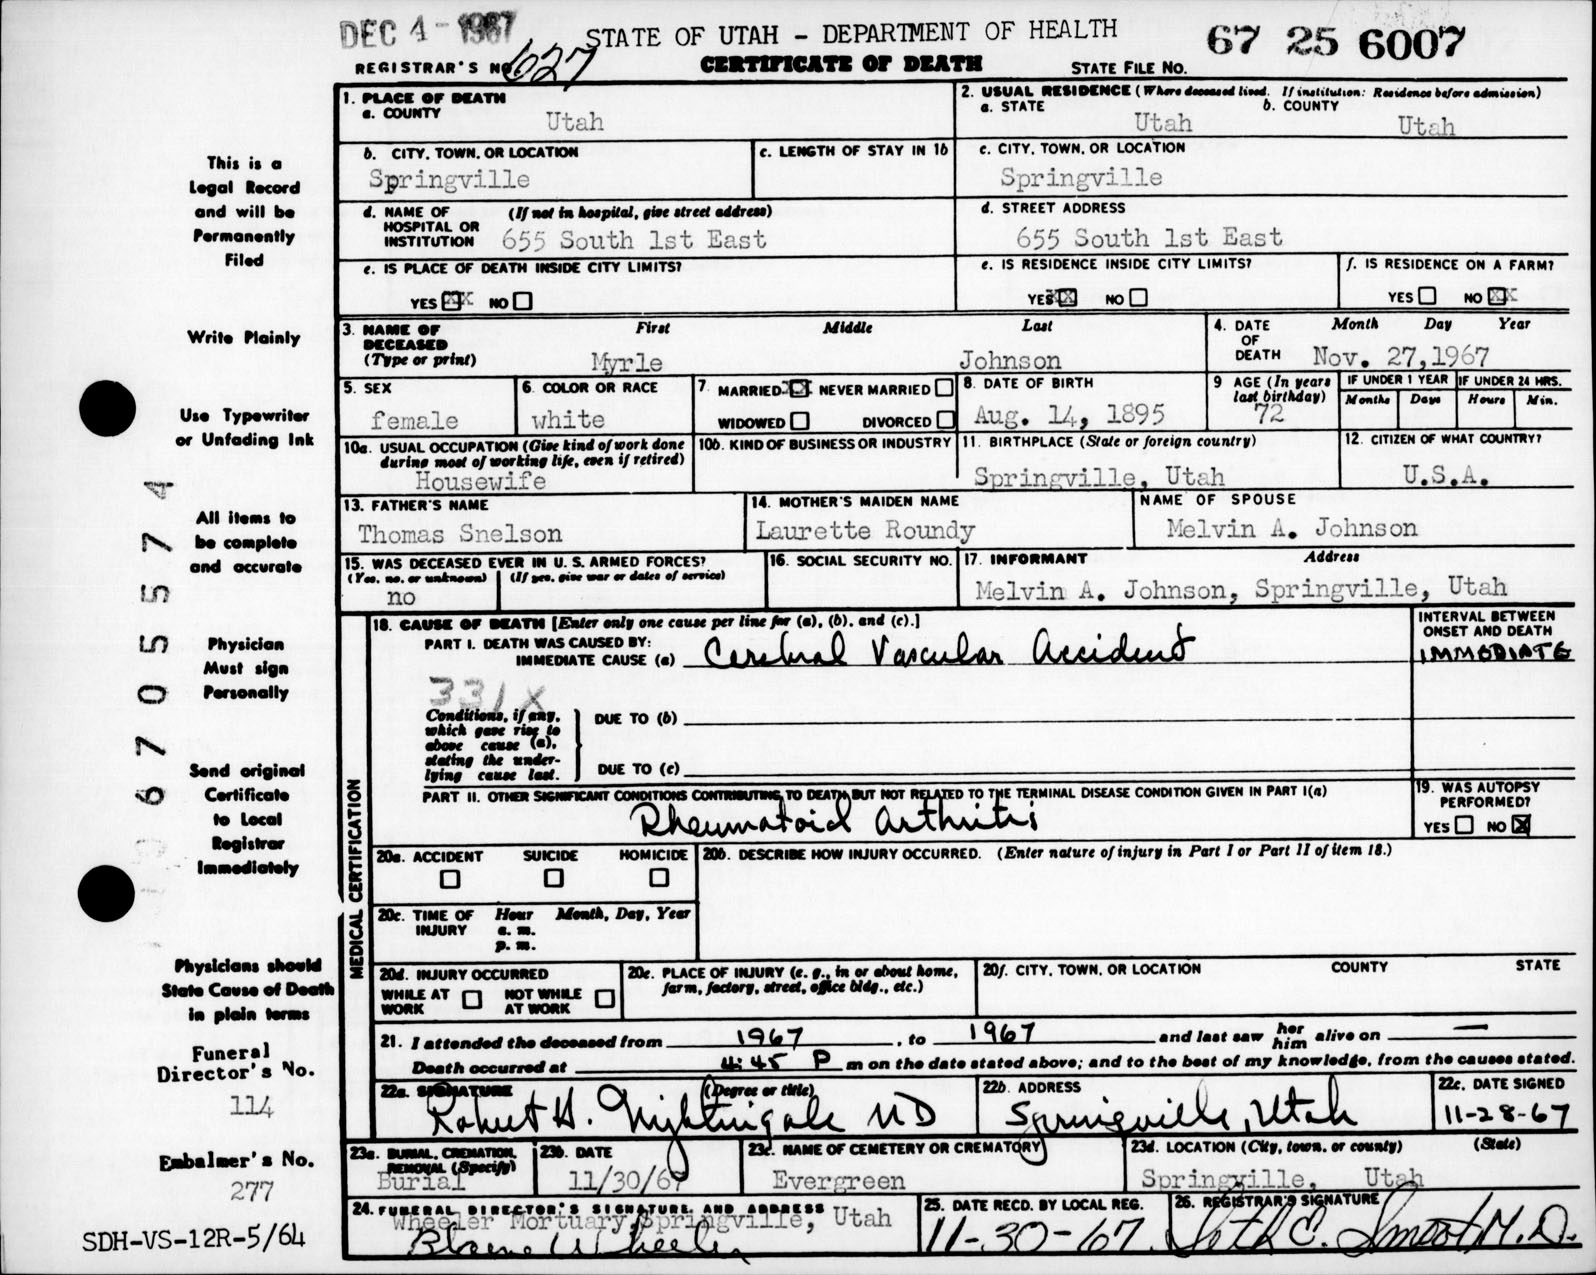 DEC 4 - 1967
STATE OF UTAH - DEPARTMENT OF HEALTH
67 25 6007
REGISTRAR'S No. 627
CERTIFICATE OF DEATH
STATE FILE NO.
1. PLACE OF DEATH
a. COUNTY
Utah
2. USUAL RESIDENCE (Where deceased lived. If institution: Residence before admission)
a. STATE b. COUNTY
Utah Utah
b. CITY, TOWN, OR LOCATION
Springville
c. LENGTH OF STAY IN 1b
c. CITY, TOWN, OR LOCATION
Springville
d. NAME OF HOSPITAL OR INSTITUTION (If not in hospital, give street address)
655 South 1st East
d. STREET ADDRESS
655 South 1st East
e. IS PLACE OF DEATH INSIDE CITY LIMITS?
YES XX NO
e. IS RESIDENCE INSIDE CITY LIMITS?
YES XX NO
f. IS RESIDENCE ON A FARM?
YES NO XX
3. NAME OF DECEASED (Type or print)
First Middle Last
Myrle Johnson
4. DATE OF DEATH Month Day Year
Nov. 27,1967
5. SEX
female
6. COLOR OR RACE
white
7. MARRIED XX NEVER MARRIED
WIDOWED DIVORCED
8. DATE OF BIRTH
Aug. 14, 1895
9 AGE (In years last birthday)
72
IF UNDER 1 YEAR IF UNDER 24 HRS.
Months Days Hours Min.
10a. USUAL OCCUPATION (Give kind of work done during most of working life, even if retired)
Housewife
10b. KIND OF BUSINESS OR INDUSTRY
11. BIRTHPLACE (State or foreign country)
Springville, Utah
12. CITIZEN OF WHAT COUNTRY?
U.S.A.
13. FATHER'S NAME
Thomas Snelson
14. MOTHER'S MAIDEN NAME
Laurette Roundy
NAME OF SPOUSE
Melvin A. Johnson
15. WAS DECEASED EVER IN U. S. ARMED FORCES?
(Yes, no, or unknown) (If yes, give war or dates of service)
no
16. SOCIAL SECURITY NO.
17. INFORMANT Address
Melvin A. Johnson, Springville, Utah
MEDICAL CERTIFICATION
18. CAUSE OF DEATH [Enter only one cause per line for (a), (b), and (c).]
INTERVAL BETWEEN ONSET AND DEATH
PART I. DEATH WAS CAUSED BY:
IMMEDIATE CAUSE (a) Cerebral Vascular Accident
IMMEDIATE
331X
Conditions, if any, which gave rise to above cause (a), stating the underlying cause last.
DUE TO (b)
DUE TO (c)
PART II. OTHER SIGNIFICANT CONDITIONS CONTRIBUTING TO DEATH BUT NOT RELATED TO THE TERMINAL DISEASE CONDITION GIVEN IN PART I(a)
Rheumatoid Arthritis
19. WAS AUTOPSY PERFORMED?
YES NO X
20a. ACCIDENT SUICIDE HOMICIDE
20b. DESCRIBE HOW INJURY OCCURRED. (Enter nature of injury in Part I or Part II of item 18.)
20c. TIME OF INJURY Hour Month, Day, Year
a. m.
p. m.
20d. INJURY OCCURRED
WHILE AT WORK NOT WHILE AT WORK
20e. PLACE OF INJURY (e. g., in or about home, farm, factory, street, office bldg., etc.)
20f. CITY, TOWN, OR LOCATION COUNTY STATE
21. I attended the deceased from 1967, to 1967 and last saw her him alive on —
Death occurred at 4:45 P m on the date stated above; and to the best of my knowledge, from the causes stated.
22a. SIGNATURE (Degree or title)
Robert H. Nightingale MD
22b. ADDRESS
Springville, Utah
22c. DATE SIGNED
11-28-67
23a. BURIAL, CREMATION, REMOVAL (Specify)
Burial
23b. DATE
11/30/67
23c. NAME OF CEMETERY OR CREMATORY
Evergreen
23d. LOCATION (City, town, or county) (State)
Springville, Utah
24. FUNERAL DIRECTOR'S SIGNATURE AND ADDRESS
Wheeler Mortuary, Springville, Utah
Blaine Wheeler
25. DATE RECD. BY LOCAL REG.
11-30-67
26. REGISTRAR'S SIGNATURE
Seth E. Smoot M.D.
This is a
Legal Record
and will be
Permanently
Filed
Write Plainly
Use Typewriter
or Unfading Ink
All items to
be complete
and accurate
Physician
Must sign
Personally
Send original
Certificate
to Local
Registrar
Immediately
Physicians should
State Cause of Death
in plain terms
Funeral
Director's No.
114
Embalmer's No.
277
SDH-VS-12R-5/64
67055574